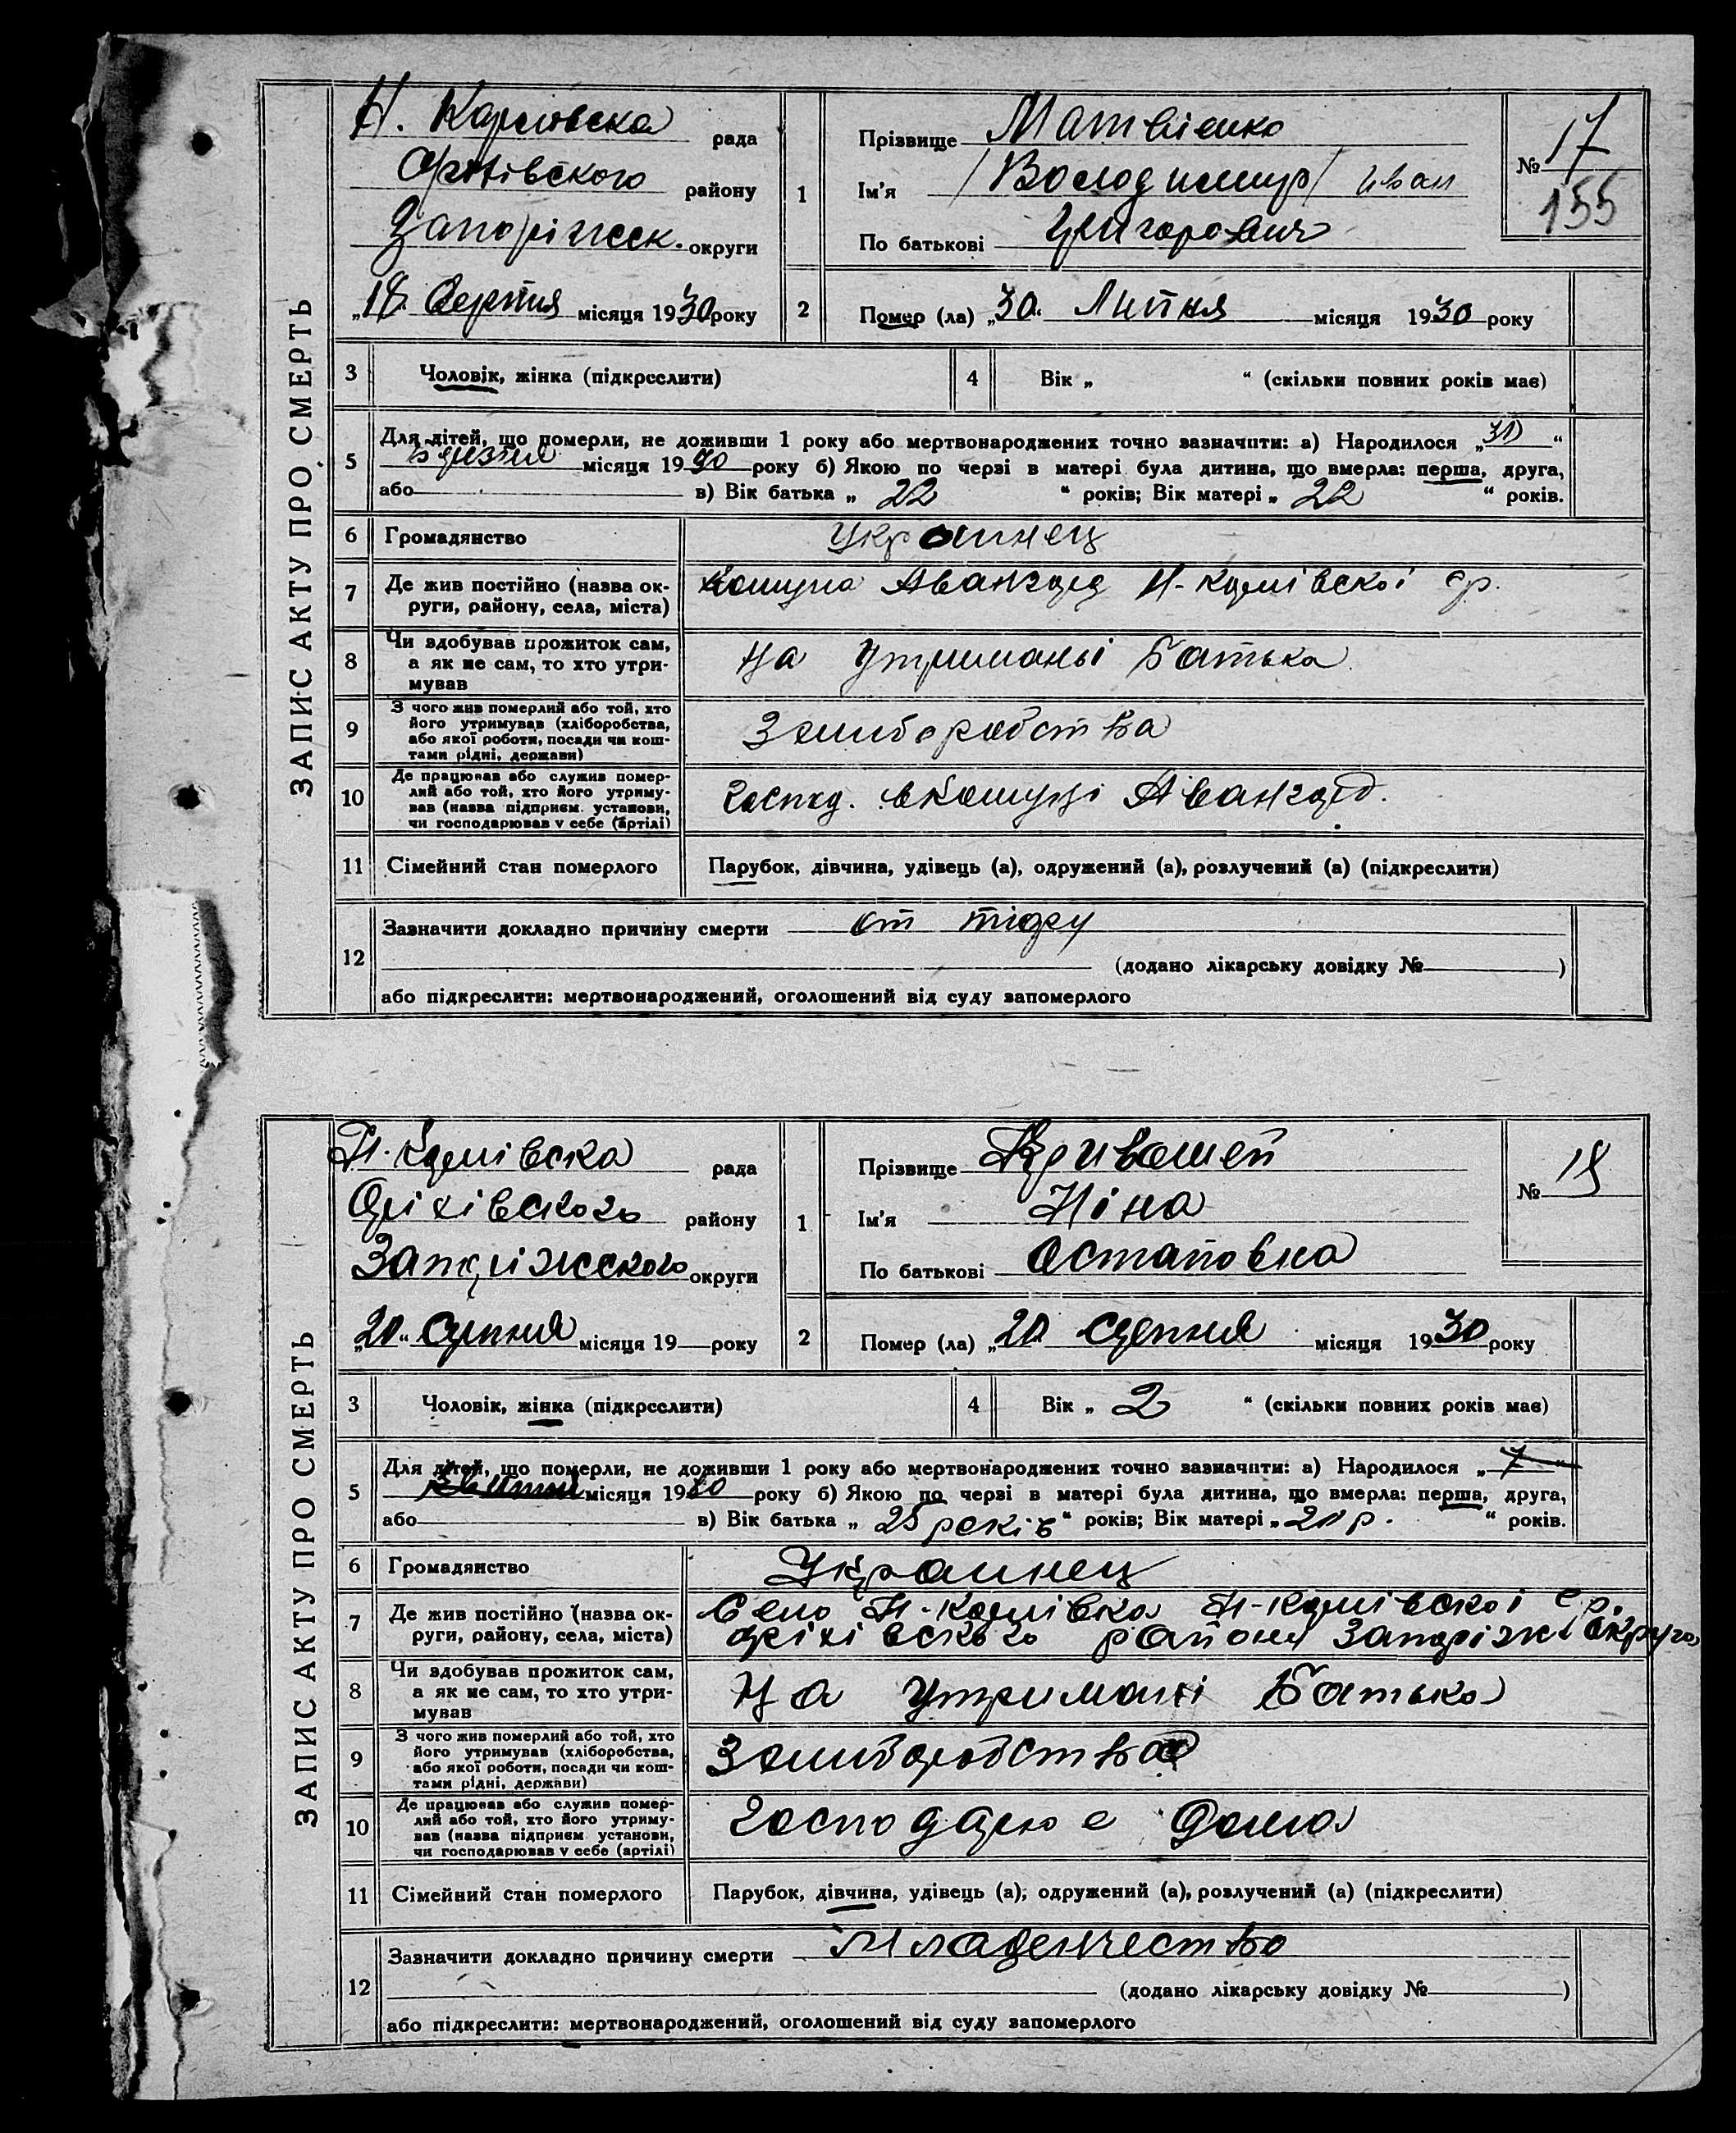 ЗАПИС АКТУ ПРО СМЕРТЬ
Н. Карловска рада
Оріхівского району
Запоріжск. округи
„18“ Серпня місяця 1930 року
1
Прізвище Матвієнко
Ім’я /Володимир/ иван
По батькові Григорович
№ 17
155
2 Помер (ла) „30“ Липня місяця 1930 року
3 Чоловік, жінка (підкреслити)
4 Вік „ “ (скільки повних років має)
5 Для дітей, що померли, не доживши 1 року або мертвонароджених точно зазначити: а) Народилося „31“
березня місяця 1930 року б) Якою по черзі в матері була дитина, що вмерла: перша, друга,
або в) Вік батька „ 22 “ років; Вік матері „ 22 “ років.
6 Громадянство украинец
7 Де жив постійно (назва ок-
руги, району, села, міста) Комуна Авангард Н-Карлівскоі ср.
8 Чи здобував прожиток сам,
а як не сам, то хто утри-
мував На утриманьі батька
9 З чого жив померлий або той, хто
його утримував (хліборобства,
або якої роботи, посади чи кош-
тами рідні, держави) Земиборобства
10 Де працював або служив помер-
лий або той, хто його утриму-
вав (назва підприєм. установи,
чи господарював у себе (артілі) Господ. вкомуні Авангард.
11 Сімейний стан померлого Парубок, дівчина, удівець (а), одружений (а), розлучений (а) (підкреслити)
12 Зазначити докладно причину смерти от
(додано лікарську довідку № )
або підкреслити: мертвонароджений, оголошений від суду запомерлого
ЗАПИС АКТУ ПРО СМЕРТЬ
Н. Карлівска рада
Оріхівского району
Запоріжского округи
„20“ Серпня місяця 19 року
1
Прізвище Кривошей
Ім’я Ніна
По батькові Остаповна
№ 18
2 Помер (ла) „20“ Серпня місяця 1930 року
3 Чоловік, жінка (підкреслити)
4 Вік „ 2 “ (скільки повних років має)
5 Для дітей, що померли, не доживши 1 року або мертвонароджених точно зазначити: а) Народилося „7“
місяця 19 року б) Якою по черзі в матері була дитина, що вмерла: перша, друга,
або в) Вік батька „ 25 років “ років; Вік матері „ р. “ років.
6 Громадянство Украинец
7 Де жив постійно (назва ок-
руги, району, села, міста) Село Н-Карлівка Н-Карлівскоі с.р.
оріхівского району Запоріжс округа
8 Чи здобував прожиток сам,
а як не сам, то хто утри-
мував На утримані батька
9 З чого жив померлий або той, хто
його утримував (хліборобства,
або якої роботи, посади чи кош-
тами рідні, держави) Земиборобства
10 Де працював або служив помер-
лий або той, хто його утриму-
вав (назва підприєм. установи,
чи господарював у себе (артілі) Господарює дома
11 Сімейний стан померлого Парубок, дівчина, удівець (а), одружений (а), розлучений (а) (підкреслити)
12 Зазначити докладно причину смерти Младенчество
(додано лікарську довідку № )
або підкреслити: мертвонароджений, оголошений від суду запомерлого